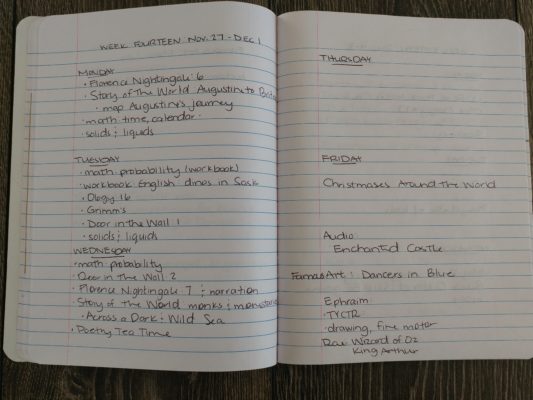 WEEK FOURTEEN NOV. 27 - DEC 1
MONDAY
· Florence Nightingale 6
· Story of The World Augustine to Britain
· map Augustine's journey
· math time, calendar.
· solids & liquids
TUESDAY
· math probability (workbook)
· workbook English dines in Sask
· Ology 16
· Grimm's
· Door in the Wall 1
· solids & liquids
WEDNESDAY
· math probability
· Door in The Wall 2
· Florence Nightingale 7 & narration
· Story of the World monks &
· Across a Dark & Wild Sea
· Poetry Tea Time
THURSDAY
FRIDAY
Christmases Around the World
Audio
Enchanted Castle
Famous Art: Dancers in Blue
Ephraim
· TYCTR
· drawing, fine motor
Wizard of Oz
King Arthur